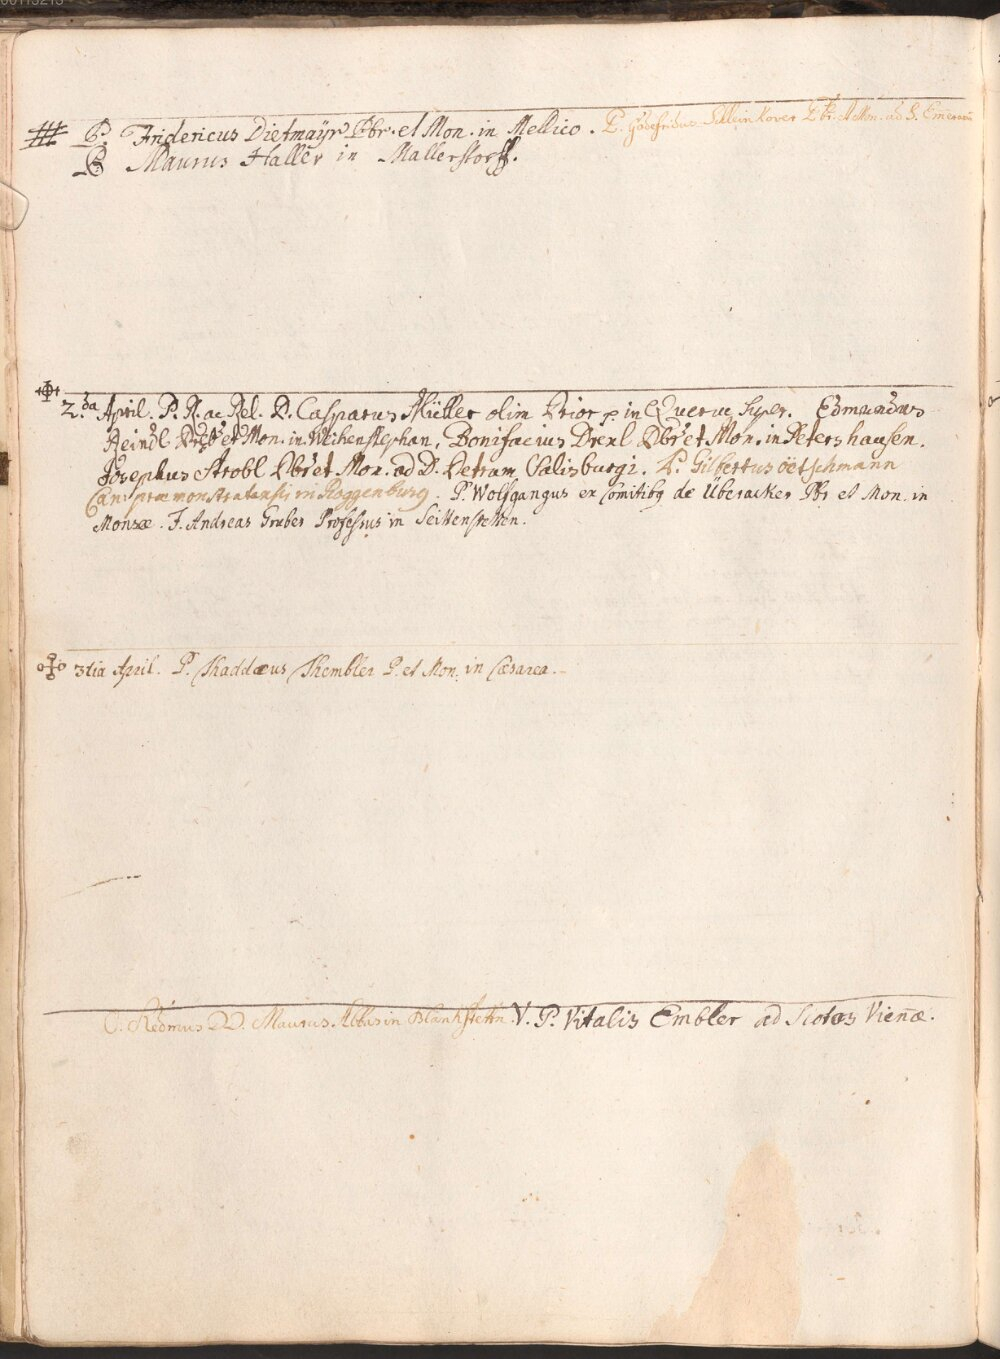 P. Fridericus Dietmaÿr Pbr. et Mon. in Mellico. P. Godefridus Pbr. et Mon. ad S. Emeram
P. Maurus Haller in Mallerstorff.
2.da April. P. R. ac Rel. D. Casparus Müller olim Prior p. in Quercu super. Edmundus
Reindl Pbr et Mon. in Weihenstephan, Bonifacius Drexl Pbr et Mon. in Petershausen.
Josephus Strobl Pbr et Mon. ad D. Petrum Salisburgi. P. Gilbertus oetschmann
Can: præmonstratensis in Roggenburg. P. Wolfgangus ex Comitibq de Überacker Pbr et Mon. in
Monsæ. F. Andreas Gruber Professus in Seittenstetten.
3tia April. P. Thaddæus Thembler P. et Mon. in Cæsarea.
O. Redmus DD. Maurus Abbas in Blankstettn. V. P. Vitalis Embler ad Scotos Vieñæ.